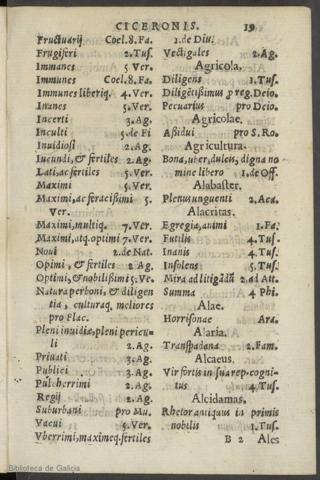 CICERONIS. 19
Fructuarij Coel.8.Fa.
Frugiferi 2.Tuſ.
Immanes 5.Ver.
Immunes Coel.8.Fa.
Immunes liberiq. 4.Ver.
Inanes 5.Ver.
Incerti 3.Ag.
Inculti 5.de Fi
Inuidioſi 2.Ag.
Iucundi, & fertiles 2.Ag.
Lati, ac fertiles 5.Ver.
Maximi 5.Ver.
Maximi, ac feraciſsimi 5.
Ver.
Maximi, multiq. 7.Ver.
Maximi, atq. optimi 7.Ver.
Noui 2.de Nat.
Opimi, & fertiles 2.Ag.
Optimi, & nobiliſsimi 5.Ve.
Natura perboni, & diligen
tia, culturaq. meliores
pro Flac.
Pleni inuidiæ, pleni pericu-
li 2.Ag.
Priuati 3.Ag.
Publici 3.Ag.
Pulcherrimi 2.Ag.
Regij 2.Ag.
Suburbani pro Mu.
Vacui 5.Ver.
Vberrimi, maximeq. fertiles
1.de Diu.
Vectigales 2.Ag.
Agricola.
Diligens 1.Tuſ.
Diligẽtiſsimus, preg.Deio.
Pecuarius pro Deio.
Agricolae.
Aſsidui pro S. Ro.
Agricultura.
Bona, uber, dulcis, digna no
mine libero 1.de Off.
Alabaſter.
Plenus unguenti 2.Aca.
Alacritas.
Egregia, animi 1.Fa.
Futilis 4.Tuſ.
Inanis 4.Tuſ.
Inſolens 5.Tuſ.
Mira ad litigãdũ 2.ad Att.
Summa 4.Phi.
Alae.
Horriſonae Ara.
Alaria.
Tranſpadana 2.Fam.
Alcaeus.
Vir fortis in ſua rep. cogni-
tus 4.Tuſ.
Alcidamas.
Rhetor antiquus in primis
nobilis 1.Tuſ.
B 2 Ales
Biblioteca de Galicia